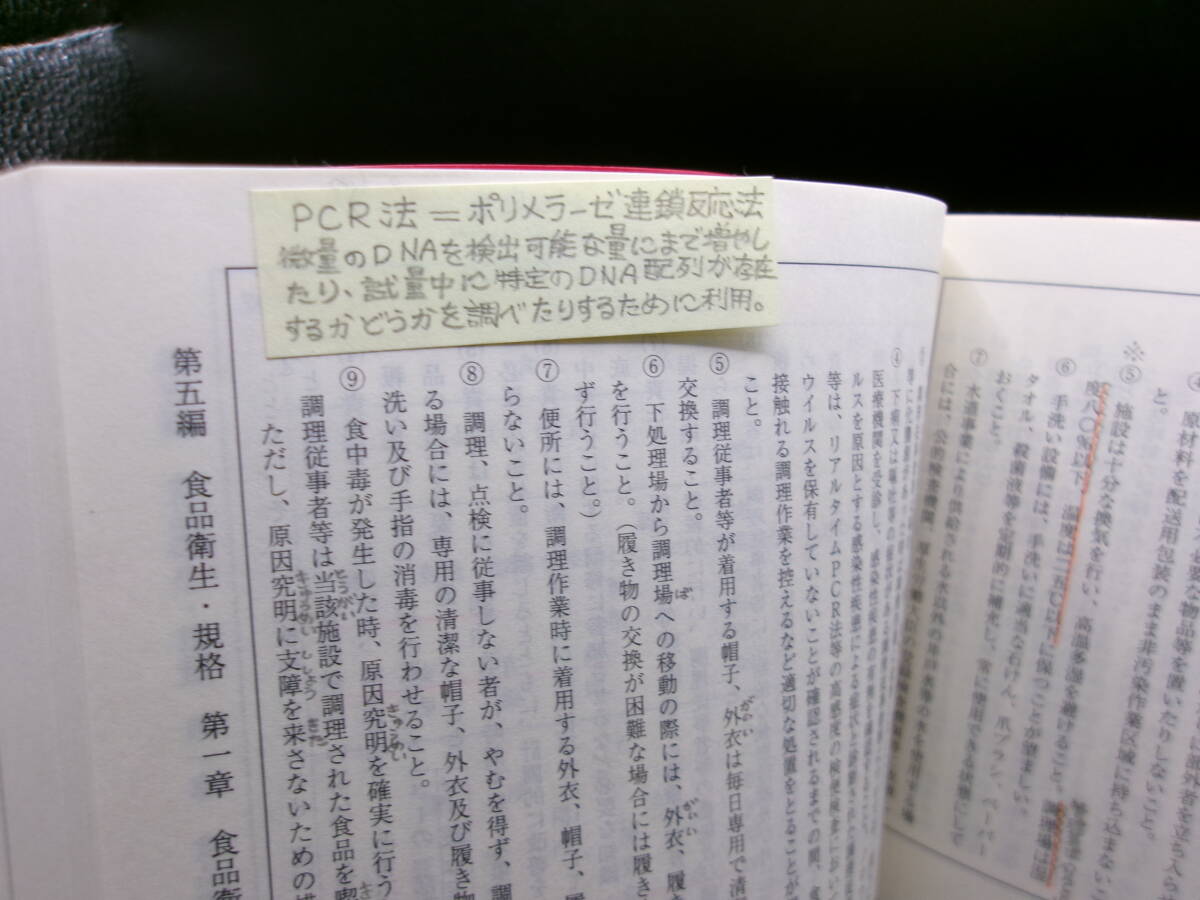 PCR法＝ポリメラーゼ連鎖反応法
微量のDNAを検出可能な量にまで増やし
たり、試量中に特定のDNA配列が存在
するかどうかを調べたりするために利用。
原材料を配送用包装のまま非汚染作業区域に持ち込まないこ
と。
※⑤ 施設は十分な換気を行い、高温多湿を避けること。調理場は湿
度八〇％以下、温度は二五℃以下に保つことが望ましい。
⑥ 手洗い設備には、手洗いに適当な石けん、爪ブラシ、ペーパー
タオル、殺菌液等を定期的に補充し、常に使用できる状態にして
おくこと。
⑦ 水道事業により供給される水以外の井戸水等の水を使用する場
合には、公的検査機関、
④ 下痢又は嘔吐等の症状が
医療機関を受診し、感染性疾患の有無を確認すること。
ルスを原因とする感染性疾患による症状と診断された調理従事者
等は、リアルタイムPCR法等の高感度の検便検査におい
ウイルスを保有していないことが確認されるまでの間、食
接触れる調理作業を控えるなど適切な処置をとることが
こと。
⑤ 調理従事者等が着用する帽子、外衣は毎日専用で清
がいい
交換すること。
⑥ 下処理場から調理場への移動の際には、外衣、履き
ば
がいい
を行うこと。（履き物の交換が困難な場合には履き
ず行うこと。）
⑦ 便所には、調理作業時に着用する外衣、帽子、履
らないこと。
⑧ 調理、点検に従事しない者が、やむを得ず、調
る場合には、専用の清潔な帽子、外衣及び履き物
洗い及び手指の消毒を行わせること。
⑨ 食中毒が発生した時、原因究明を確実に行う
きゅうめい
調理従事者等は当該施設で調理された食品を喫
とうがい
ただし、原因究明に支障を来さないための措
きゅうめい ししょう きた
第五編 食品衛生・規格 第一章 食品衛